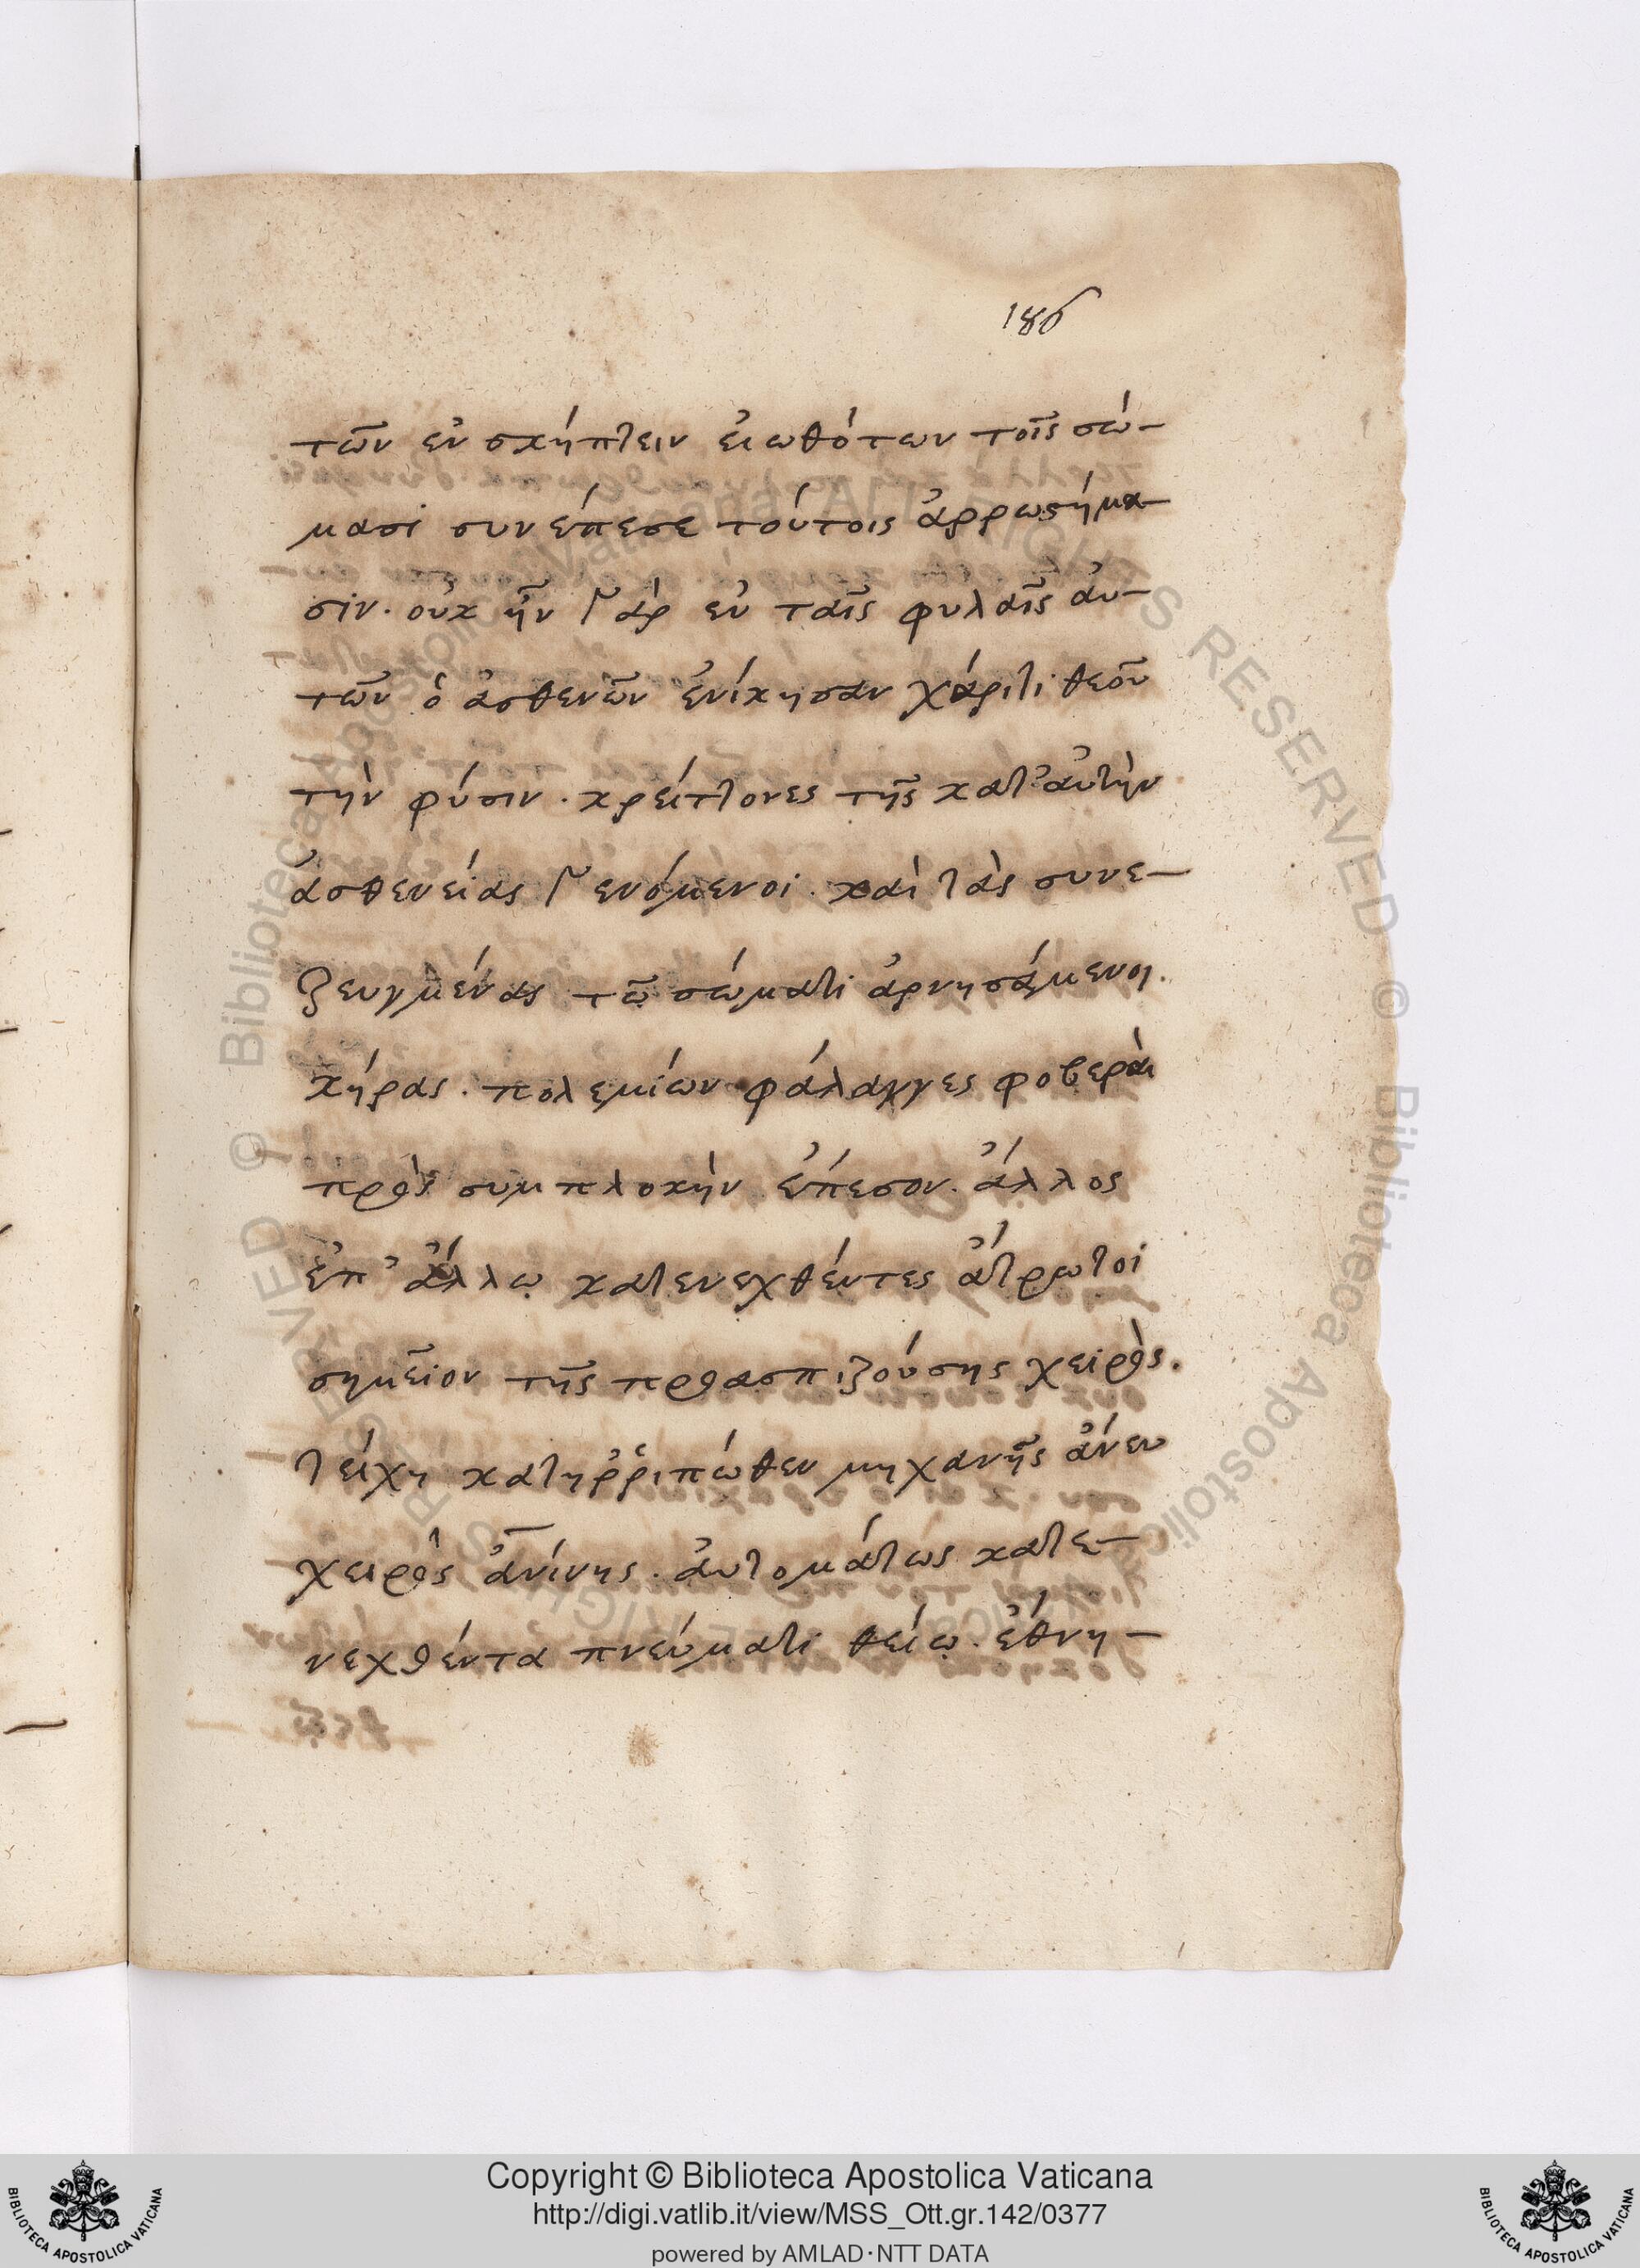 186
τῶν ἐν σκήπτειν εἰωθότων τοῖς σώ-
μασι συνέπεσε τούτοις ἀρρωστήμα-
σιν. οὐκ ἦν γὰρ ἐν ταῖς φυλαῖς αὐ-
τῶν ὁ ἀσθενῶν ἐνίκησαν χάριτι θεοῦ
τὴν φύσιν. κρείττονες τῆς κατ' αὐτὴν
ἀσθενείας γενόμενοι. καὶ τὰς συνε-
ζευγμένας τῷ σώματι ἀρνησάμενοι.
κῆρας. πολεμίων φάλαγγες φοβεραὶ
πρὸς συμπλοκὴν ἔπεσον. ἄλλος
ἐπ' ἄλλῳ κατενεχθέντες ἄτρωτοι
σημεῖον τῆς προασπιζούσης χειρὸς.
τείχη κατηῤῥιπώθεν μηχανῆς ἄνευ
χειρὸς ἀνίνης. αὐτομάτως κατε-
νεχθέντα πνεύματι θείῳ. ἔθνη-
Copyright © Biblioteca Apostolica Vaticana
http://digi.vatlib.it/view/MSS_Ott.gr.142/0377
powered by AMLAD·NTT DATA
BIBLIOTECA APOSTOLICA VATICANA
BIBLIOTECA APOSTOLICA VATICANA